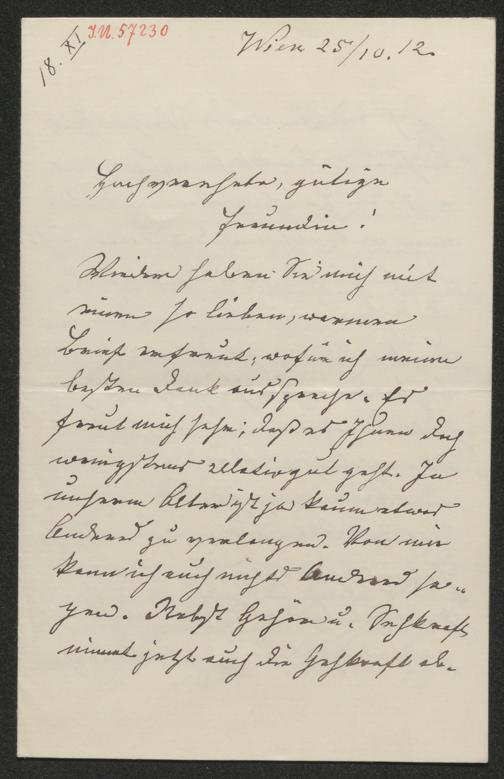 18. XI
I.N. 57230
Wien 25/10. 12.
Hochverehrte, gütige
Freundin!
Wieder haben Sie mich mit
einem so lieben, warmen
Brief erfreut, wofür ich meinen
besten Dank ausspreche. Es
freut mich sehr, daß es Ihnen doch
wenigstens relativ gut geht. In
unserem Alter ist ja kaum etwas
Anderes zu verlangen. Von mir
kann ich auch nichts Anderes sa-
gen. Nebst Gehör u. Sehkraft
nimmt jetzt auch die Gehkraft ab.